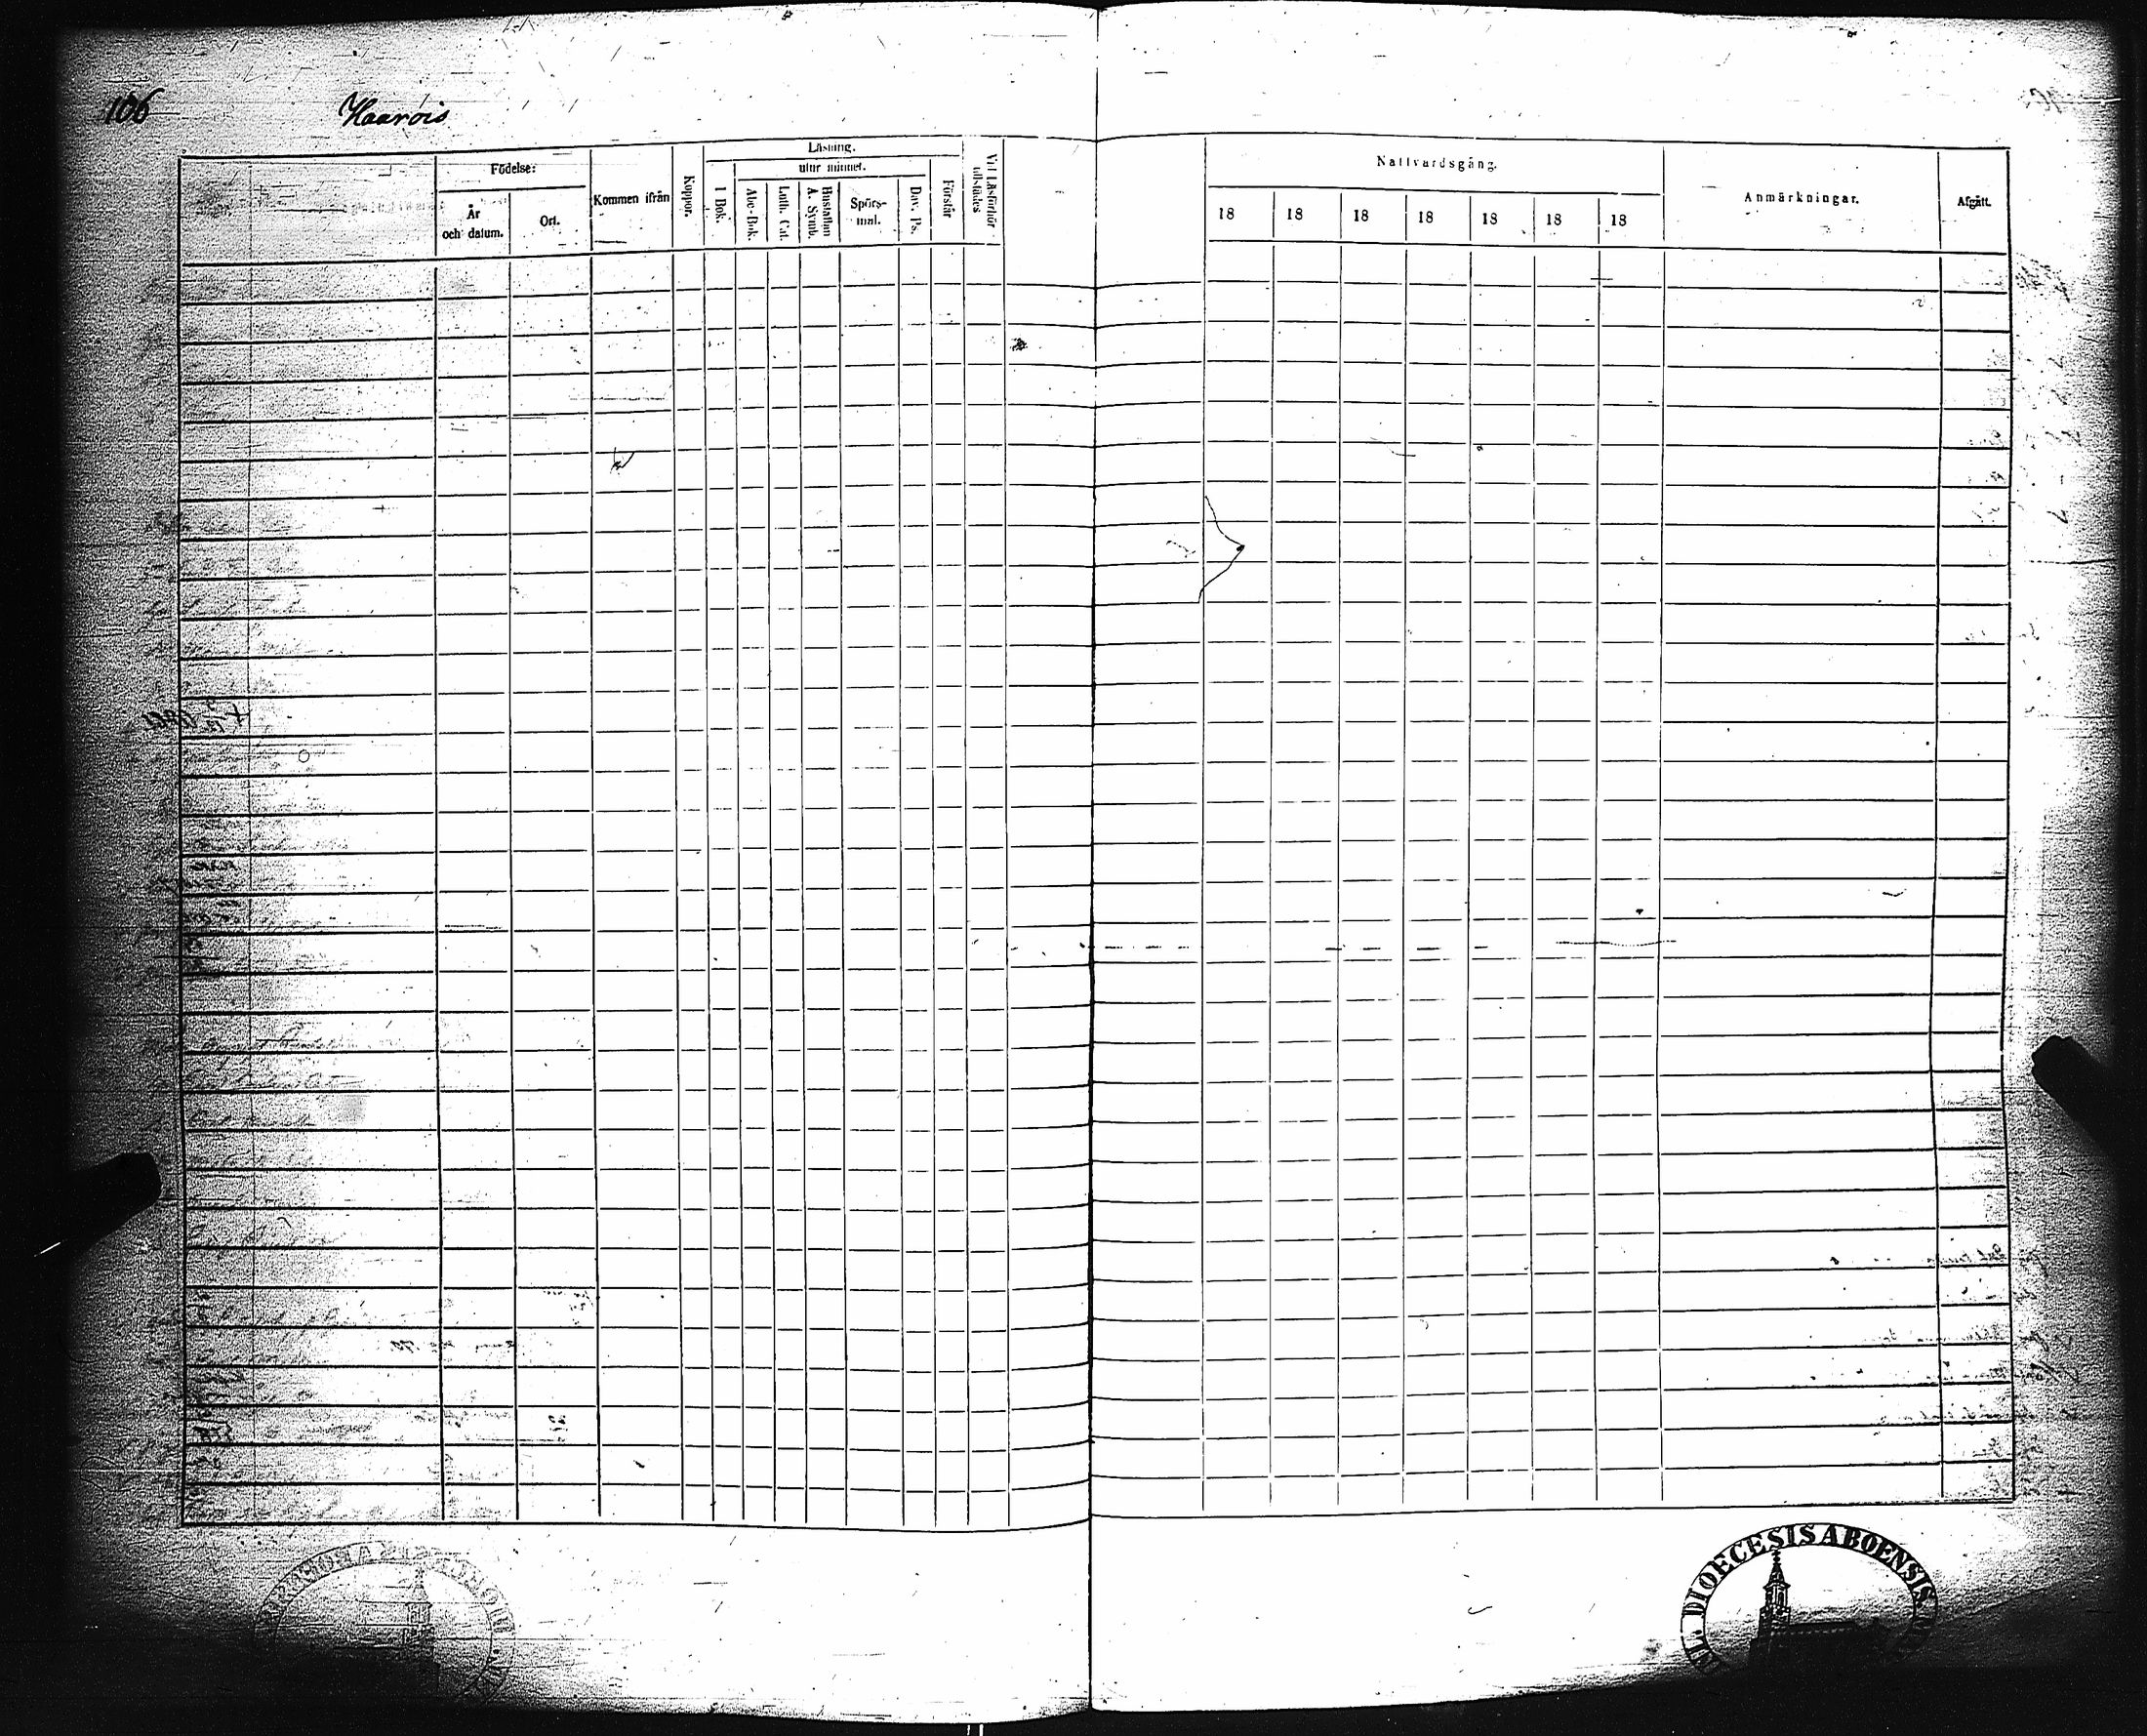 106
Haarois
Födelse:
År
och datum.
Ort.
Kommen ifrån
Koppor.
Läsning.
I Bok.
utur minnet.
Abc-Bok.
Luth. Cat.
Hustaflan
A. Symb.
Spörs-
mal.
Dav. Ps.
Förstår
Vid Läsförhör
tillstädes
Nattvardsgång.
18 18 18 18 18 18 18
Anmärkningar.
Afgått.
DIOECESIS ABOENSIS